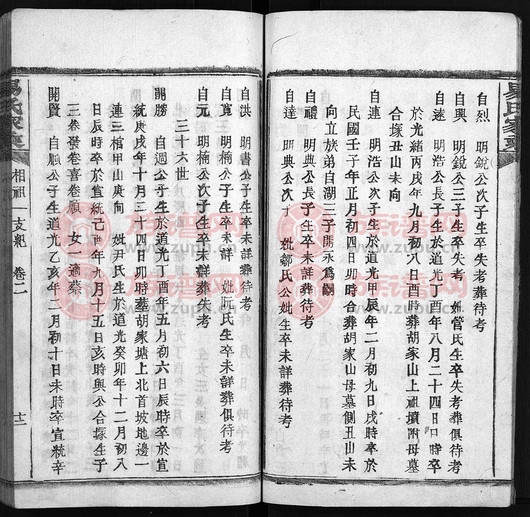 自烈　明銳公次子生卒失考葬待考
自興　明銳公三子生卒失考　妣管氏生卒失考葬俱待考
自速　明浩公長子生於道光丁酉年八月二十四日　時卒
於光緒丙戌年九月初八日酉時葬胡家山上祖墳附母墓
合塚丑山未向
自連　明浩公次子生於道光甲辰年二月初九日戌時卒於
民國壬子年正月初四日卯時合葬胡家山母墓側丑山未
向立族弟自湖三子開永為嗣
自禮　明典公長子生卒未詳葬待考
自達　明典公次子　妣鄒氏公妣生卒未詳葬待考
自洪　明書公次子生卒未詳葬待考
自寬　明楠公次子生卒未詳　妣阮氏生卒未詳葬俱待考
自元　明楠公子生卒未詳葬失考
三十六世
開勝　自週公子生於道光丁酉年五月初六日辰時卒於宣
統庚戌年十月二十四日卯時葬胡家塘上北首坡地邊一
連三棺甲山庚向　妣尹氏生於道光癸卯年十二月初八
日辰時卒於宣統己酉年九月十五日亥時與公合塚生子
三卷發卷喜卷願　女一適蔡
開賢　自順公子生於道光乙亥年二月初十日未時卒宣統辛
易氏家乘
相祖一支紀　卷二
十二
易氏家乘
族譜网
www.zupu.cn